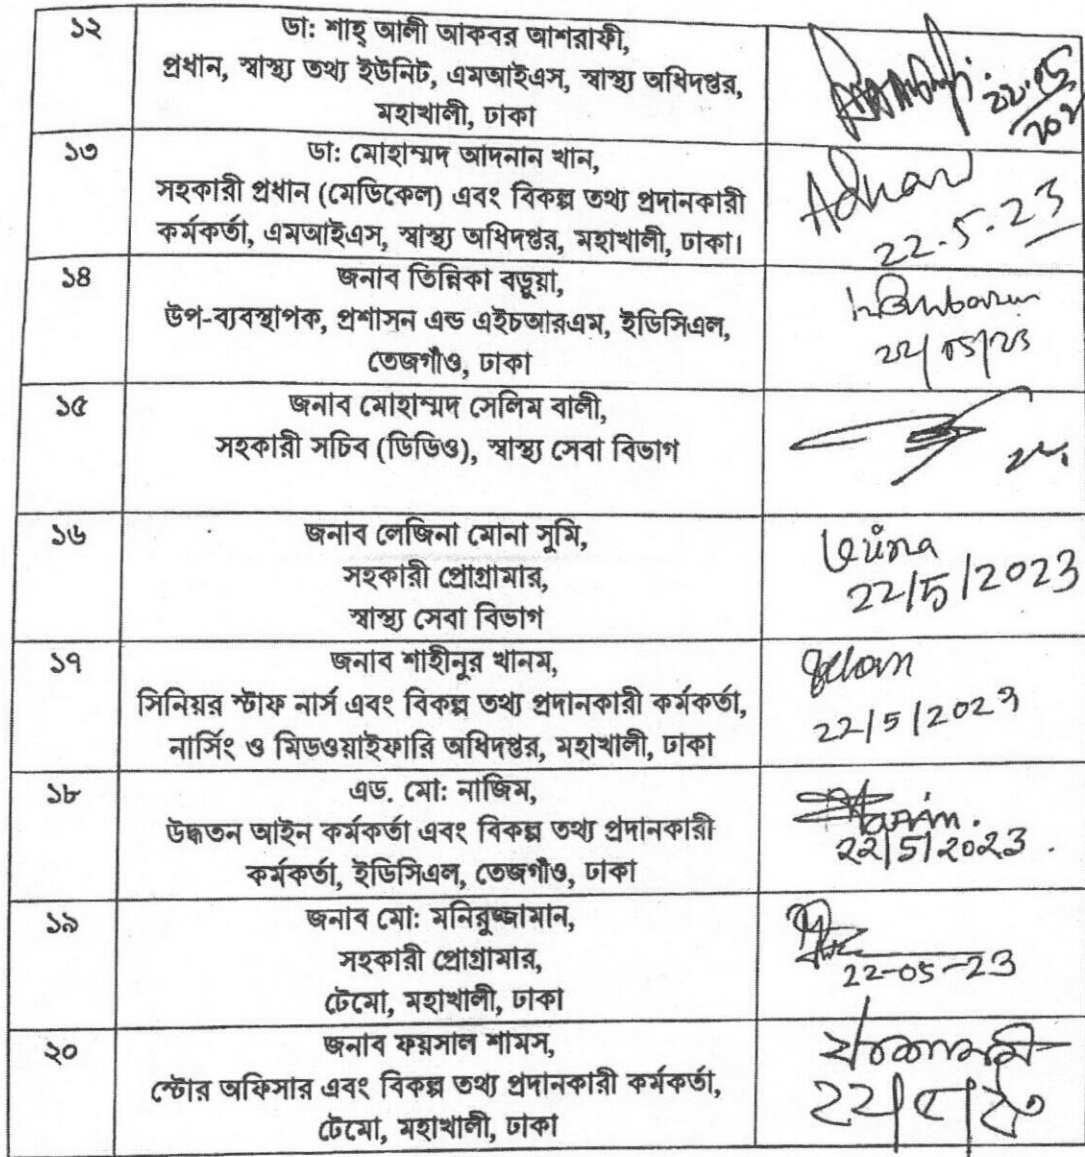 ১২
ডা: শাহ্ আলী আকবর আশরাফী,
প্রধান, স্বাস্থ্য তথ্য ইউনিট, এমআইএস, স্বাস্থ্য অধিদপ্তর,
মহাখালী, ঢাকা
১৩
ডা: মোহাম্মদ আদনান খান,
সহকারী প্রধান (মেডিকেল) এবং বিকল্প তথ্য প্রদানকারী
কর্মকর্তা, এমআইএস, স্বাস্থ্য অধিদপ্তর, মহাখালী, ঢাকা।
Adnan
22.5.23
১৪
জনাব তিন্নিকা বড়ুয়া,
উপ-ব্যবস্থাপক, প্রশাসন এন্ড এইচআরএম, ইডিসিএল,
তেজগাঁও, ঢাকা
22/05/23
১৫
জনাব মোহাম্মদ সেলিম বালী,
সহকারী সচিব (ডিডিও), স্বাস্থ্য সেবা বিভাগ
১৬
জনাব লেজিনা মোনা সুমি,
সহকারী প্রোগ্রামার,
স্বাস্থ্য সেবা বিভাগ
22/5/2023
১৭
জনাব শাহীনুর খানম,
সিনিয়র স্টাফ নার্স এবং বিকল্প তথ্য প্রদানকারী কর্মকর্তা,
নার্সিং ও মিডওয়াইফারি অধিদপ্তর, মহাখালী, ঢাকা
22/5/2023
১৮
এড. মো: নাজিম,
উদ্ধতন আইন কর্মকর্তা এবং বিকল্প তথ্য প্রদানকারী
কর্মকর্তা, ইডিসিএল, তেজগাঁও, ঢাকা
22/5/2023.
১৯
জনাব মো: মনিরুজ্জামান,
সহকারী প্রোগ্রামার,
টেমো, মহাখালী, ঢাকা
22-05-23
২০
জনাব ফয়সাল শামস,
স্টোর অফিসার এবং বিকল্প তথ্য প্রদানকারী কর্মকর্তা,
টেমো, মহাখালী, ঢাকা
২২/৫/২৩